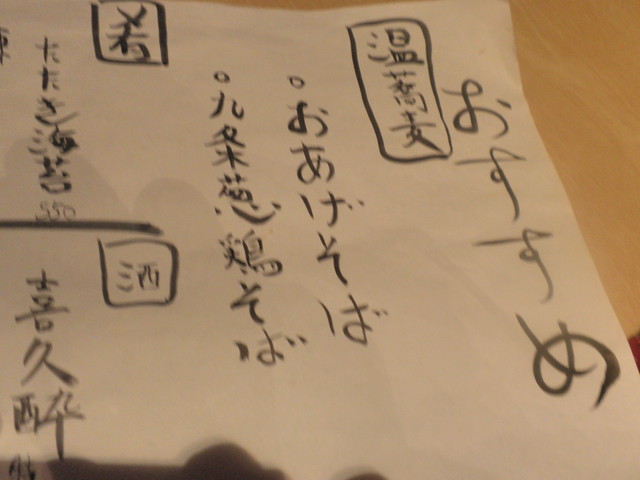 おすすめ
温蕎麦
。おあげそば
。九条葱鶏そば
肴
たたき海苔 550
酒
喜久酔